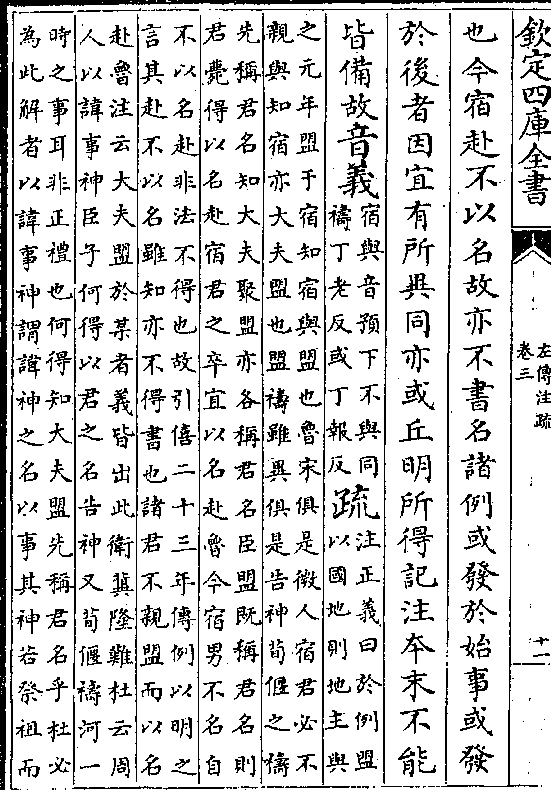 欽定四庫全書
左傳注疏
卷三
十一
也今宿赴不以名故亦不書名諸例或發於始事或發
於後者因宜有所異同亦或丘明所得記注夲末不能
皆備故音義
宿與音預下不與同
禱丁老反或丁報反
疏
注正義曰於例盟
以國地則地主與
之元年盟于宿知宿與盟也魯宋俱是微人宿君必不
親與知宿亦大夫盟也盟禱雖異俱是告神荀偃之禱
先稱君名知大夫聚盟亦各稱君名臣盟既稱君名則
君薨得以名赴宿君之卒宜以名赴魯今宿男不名自
不以名赴非法不得也故引僖二十三年傳例以明之
言其赴不以名雖知亦不得書也諸君不親盟而以名
赴魯注云大夫盟於某者義皆出此衛冀隆難杜云周
人以諱事神臣子何得以君之名告神又荀偃禱河一
時之事耳非正禮也何得知大夫盟先稱君名乎杜必
為此解者以諱事神謂諱神之名以事其神若祭祖而